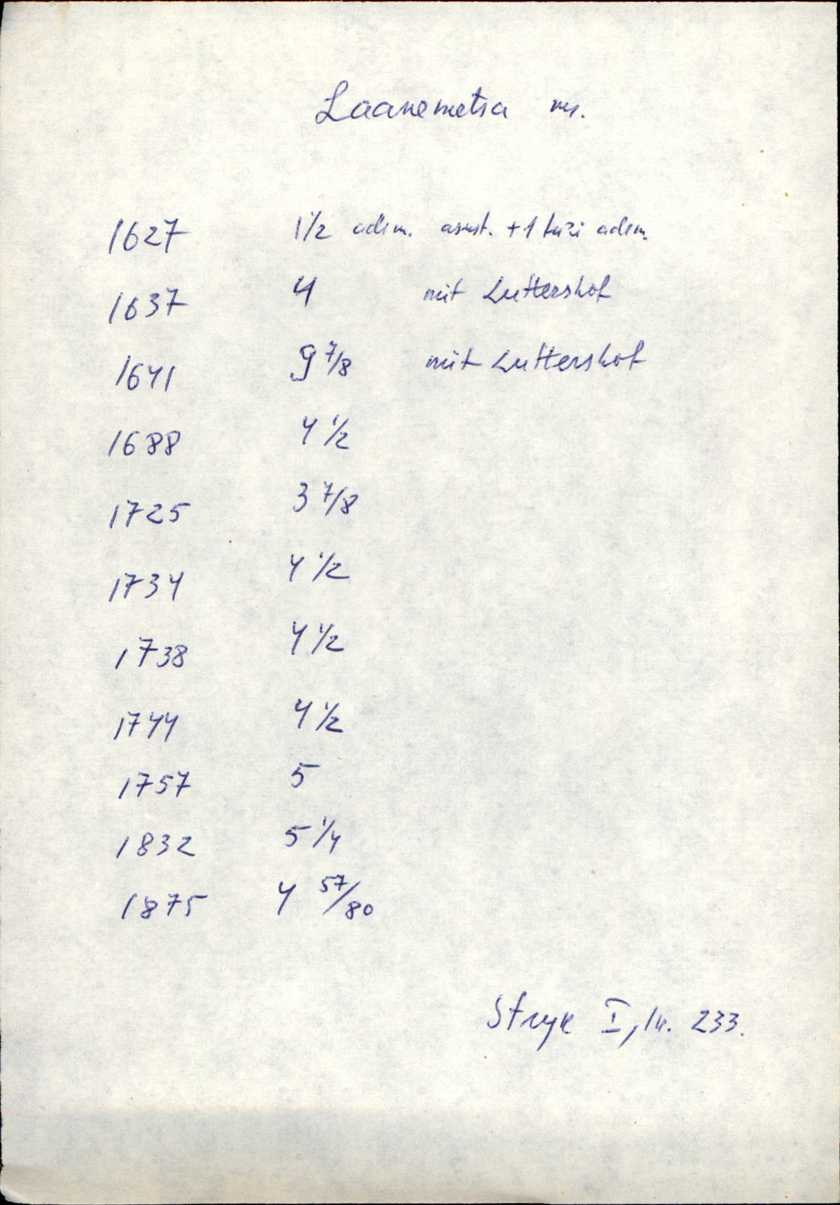 Laanemetsa m.
1627 1 1/2 adrm. asust. + 1 tühi adrm.
1637 4 mit Luttershof
1641 9 7/8 mit Luttershof
1688 4 1/2
1725 3 7/8
1734 4 1/2
1738 4 1/2
1744 4 1/2
1757 5
1832 5 1/4
1875 4 57/80
Stryk I, lk. 233.